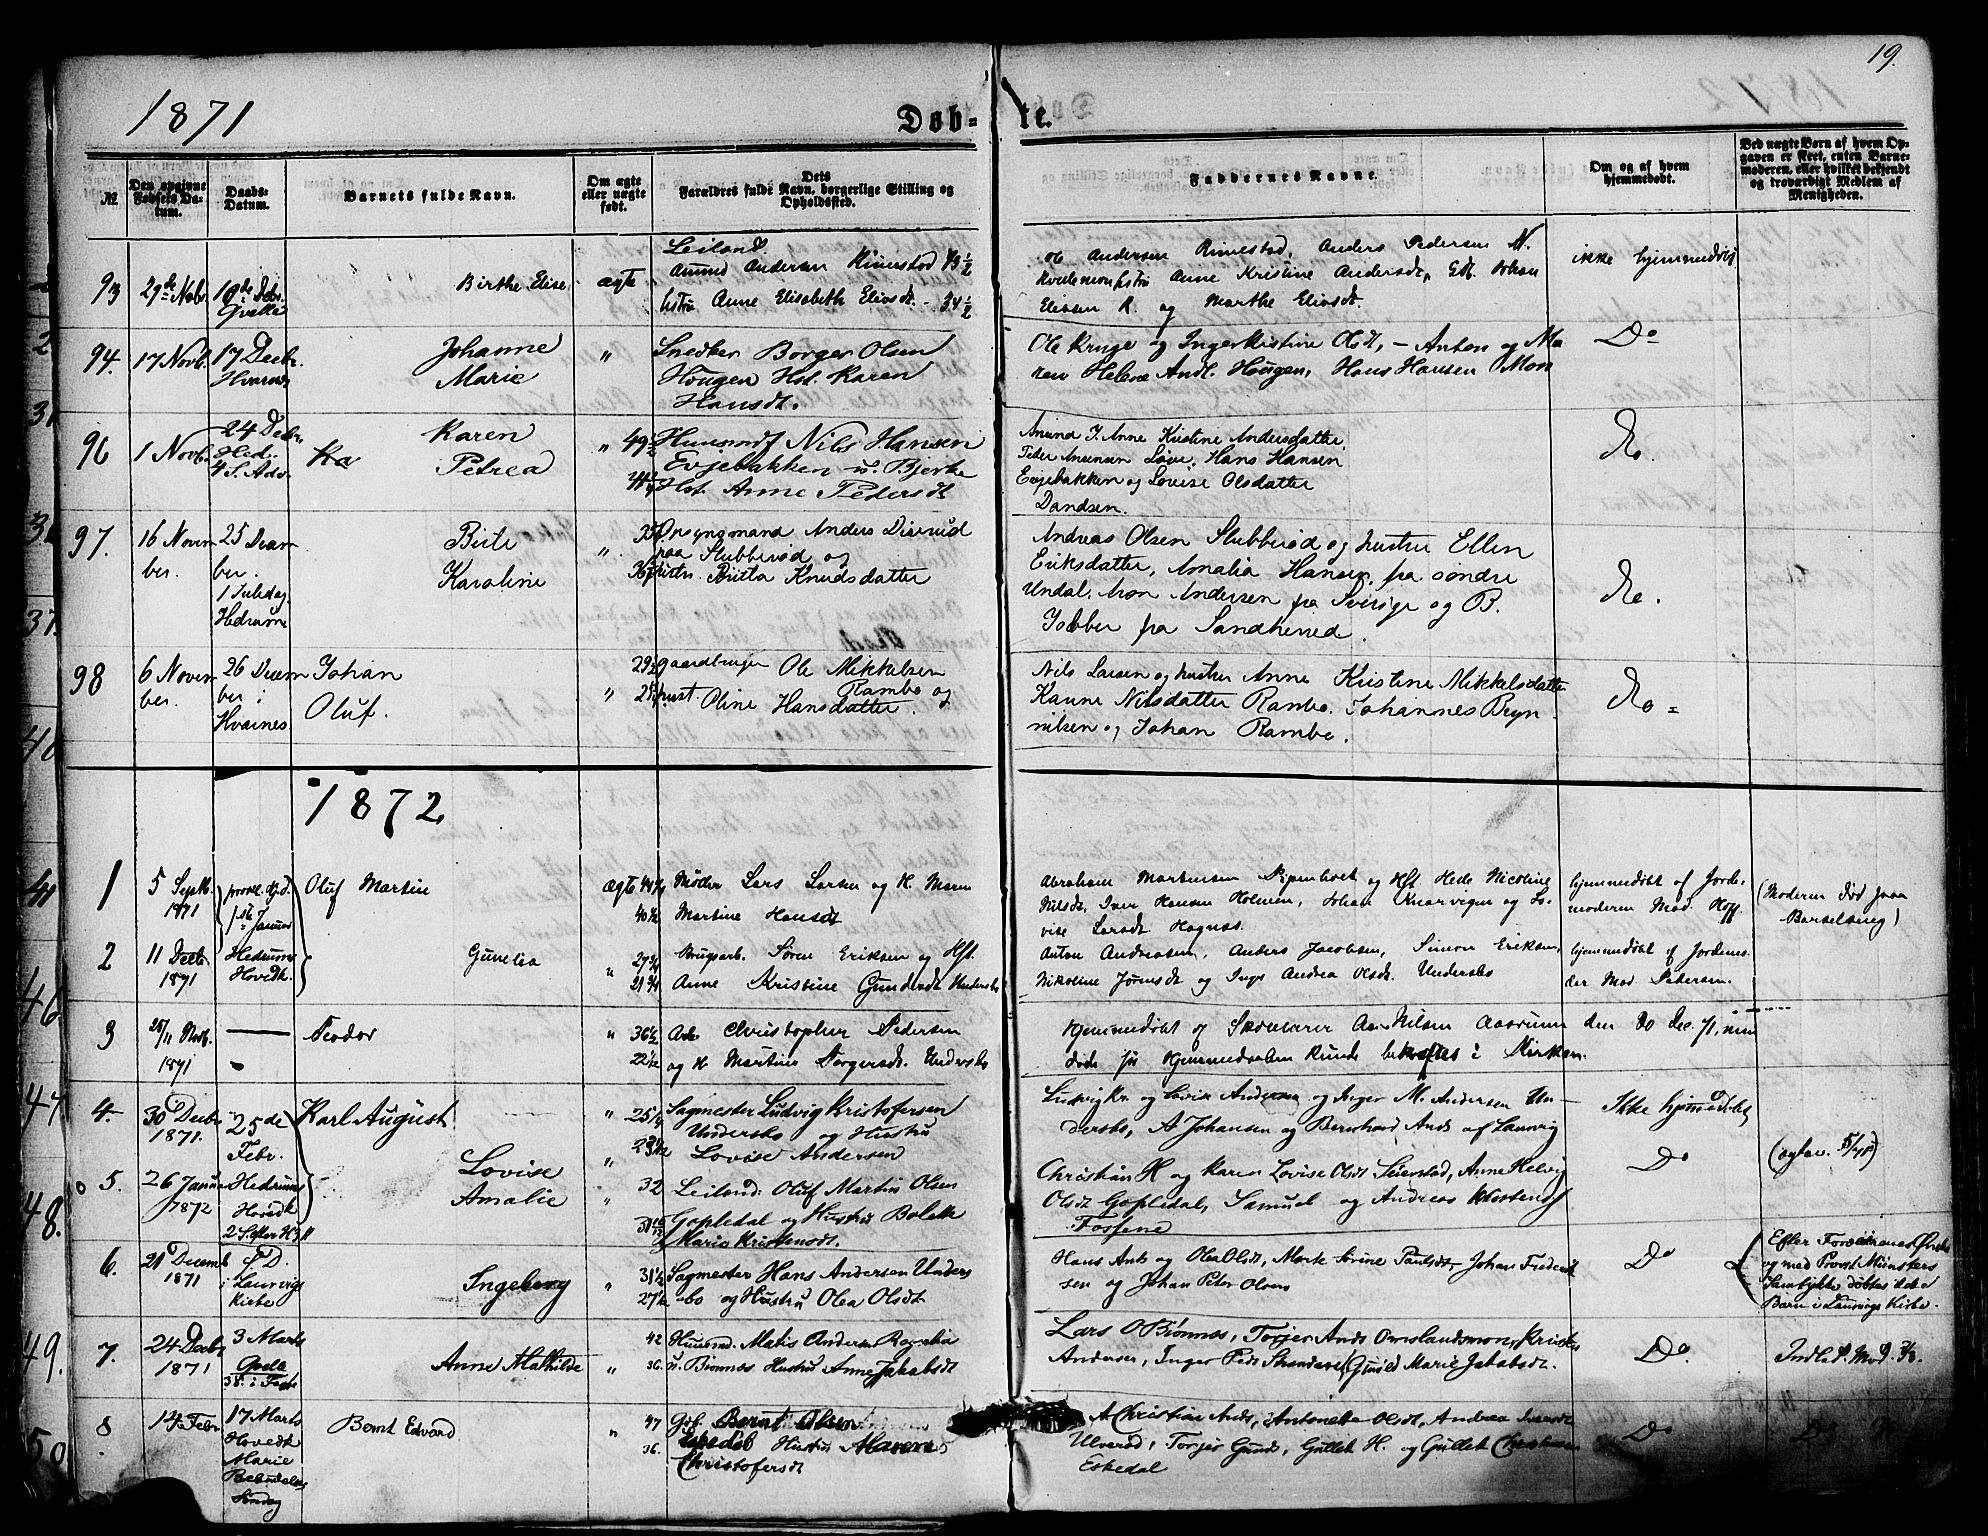 19.
1871
Døb-
te.
№
Den opgivne Fødsels Datum.
Daabs-Datum.
Barnets fulde Navn.
Om ægte eller uægte født.
Dets Forældres fulde Navn, borgerlige Stilling og Opholdssted.
Faddernes Navne.
Om og af hvem hjemmedøbt.
Ved uægte Børn af hvem Opgaven er skeet, enten Barnemoderen, eller hvilket bekjendt og troværdigt Medlem af Menigheden.
93
29de Novbr.
Birthe Elise
ægte
Leiland
Amund Andersen Rimestad 43½
Hustru Anne Elisabeth Eliasdt. - 34½
Andersen Rimestad, Anders Pedersen N.
Anne Kristine Andersdt, Johan
Eliasen R. og Marthe Eliasdt.
ikke hjemmedøbt
94.
17 Novb.
17 Decbr.
Hvarnes
Johanne
Marie
"
Snedker Borger Olsen
Hougen Hst. Karen
Hansdt.
Ole Kruge og Ingerkistine Olsdt, - Anton og Ma
ren Helene Andt. Hougen, Hans Hansen Moen
Do
96
1 Novb.
24 Decbr.
Hed.
4 S. Adv.
Ka
Karen
Petrea
"
Huusmd Nils Hansen
Evjebakken u. Bjerke
Hst. Anne Pedersdt
Amund J. Anne Kistine Andersdatter
Peder Amensen Løve, Hans Hansen
Evjebakken og Lovise Olsdatter
Dandsen.
Do.
97.
16 Novem
ber.
25 Decem
ber.
1 Juledag.
Hedrum
Birte
Karoline
"
35
36
Anders Diserud
paa Slubberød og
Hustru Britta Knudsdatter
Andreas Olsen Slubberød og hustru Ellen
Eriksdatter, Amalia Hansen, fra søndre
Undal, Aron Andersen fra Sverige og B.
Jobber fra Sandhered.
Do.
98
6 Novem
ber.
26 Decem
ber i
Hvarnes
Johan
Oluf.
"
Gaardbruger Ole Mikkelsen
Rambo og
hust. Oline Hansdatter.
Nils Larsen og hustru Anne Kristine Mikkelsdatter
Karine Nilsdatter Rambo, Johannes Bryn
nilsen og Johan Rambo.
Do =
1872
1
5 Septb.
1871
Januar
Oluf Martin
ægte
40½
Møller Lars Larsen og H. Maren
Martine Hansdt
Abraham Martinsen og Hst Hede Nicoline
Nilsdt, Iver Hansen Holmen, Johan og Lo-
vise Larsdt Hagnæs.
hjemmedøbt af Jorde-
moderen Mad. Hoff.
(Moderen død paa
Barselseng)
2
11 Decbr
1871
Hedrum
Hovedk.
Gunelia
"
27¾
21¾
Brugsarb. Sören Eriksen og Hst.
Anne Kristine Gundersdt Undersbo
Anton Andreasen, Anders Jacobsen, Simon Eriksen,
Nikoline Jørensdt og Inger Andrea Olsdt. Undersbo
hjemmedøbt af Jordemo-
der Mad. Pedersen.
3
1871
Teodor
"
36½
22½
Arb. Christopher Pedersen
og H. Martine Torgersdt. Undersbo
Hjemmedøbt af Skolelærer Nilsen Aasrum den 30 Dec. 71, men
døde før Hjemmedaaben kunde bekræftes i Kirken.
4.
30 Decbr
1871.
25de
Febr.
Karl August
"
25¼
23½
Sagmester Ludvig Kristofersen
Undersbo og Hustru
Lovise Andersen
Ludvig Kr. og Lovise Andersen og Inger M. Andersen Un-
dersbo, A Johansen og Bernhard Ands af Laurvig
Ikke hjemmedøbt
5.
26 Januar
1872
Hedrums
Hovedk
2 S. efter H3K
Lovise
Amalie
"
32
Leilend: Oluf Martin Olsen
Gopledal og Hustru Bolette
Marie Kristensdt.
Christian H og Karen Lovise Olsdt Seierstad, Anne Helvig
Olsdt Gopledal, Samuel og Andreas Kristensen
Fossene
Do
6.
21 Decemb
1871
i Laurvigs
Kirke
Ingeborg
"
31½
27½
Sagmester Hans Andersen Unders
bo og Hustru Olea Olsdt
Hans Ands og Olea Olsdt, Marte Karine Paulsdt, Johan Frederik
sen og Johan Peter Olsen
Do
Efter Forældrenes Ønske
og med Provst Münsters
Samtykke døbtes dette
Barn i Laurvigs Kirke.
7.
24 Decbr
1871
3 Marts
Qvelde
3 S. i Faste
Anne Mathilde
"
42
36.
Huusmd. Matis Andersen
u. Bønnæs Hustru Anne Jakobsdt
Lars O Bönnæs, Torjer Ands Omslandsmoen, Kristen
Andersen, Inger Pedt Skandsen, Gunild Marie Jakobsdt.
Do.
8
14 Febr
17 Marts
Hovedk
Marie
Bebudelses
Søndag
Bernt Edvard
"
47
36.
Gbr. Bernt Olsen
Eskedal Hustru Maren
Christofersdt
A Christian Ands, Antonette Olsdt, Andrea Iversdt
Ulverød, Torger Gunds, Gullek H. og Gullek Christiansen
Eskedal
Do
Do